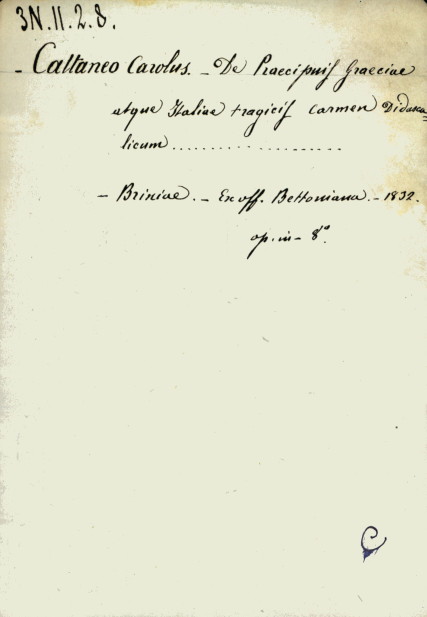 3N.11.2.8.
- Cattaneo Carolus. - De Praecipuis Graeciae
atque Italiae tragicis carmen Didasca=
licum ....................
- Brixiae. - Ex off. Bettoniana. - 1832.
op. in - 8°.
C